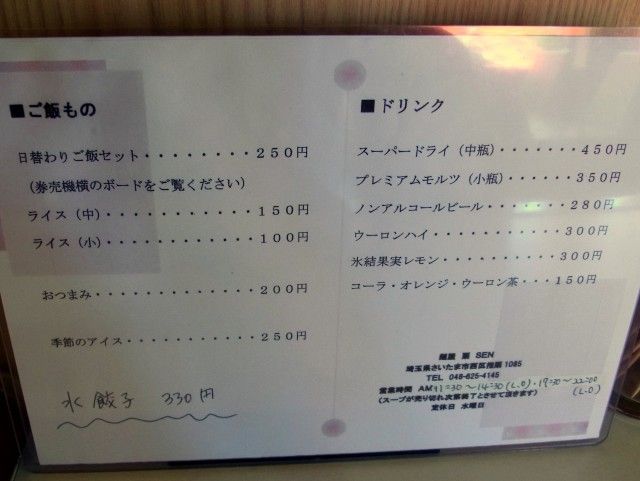 ■ご飯もの
日替わりご飯セット・・・・・・・・・250円
（券売機横のボードをご覧ください）
ライス（中）・・・・・・・・・・・・150円
ライス（小）・・・・・・・・・・・・100円
おつまみ・・・・・・・・・・・・・200円
季節のアイス・・・・・・・・・・・250円
水餃子 330円
■ドリンク
スーパードライ（中瓶）・・・・・・・450円
プレミアムモルツ（小瓶）・・・・・・350円
ノンアルコールビール・・・・・・・280円
ウーロンハイ・・・・・・・・・・・300円
氷結果実レモン・・・・・・・・・・300円
コーラ・オレンジ・ウーロン茶・・・150円
SEN
埼玉県さいたま市西区指扇1085
TEL 048-625-4145
営業時間 AM11:30～14:30(L.O)・17:30～22:00(L.O)
（スープが売り切れ次第終了とさせて頂きます）
定休日 水曜日